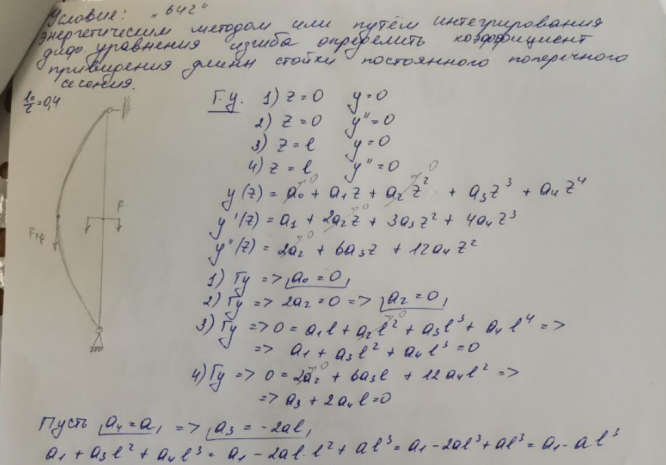 Условие: „642"
энергетическим методом или путём интегрирования
дифф. уравнения изгиба определить коэффициент
приведения длины стойки постоянного поперечного
сечения.
l₀/l = 0,4
Г.у. 1) z=0 y=0
2) z=0 y''=0
3) z=l y=0
4) z=l y''=0
y(z) = a₀ + a₁z + a₂z² + a₃z³ + a₄z⁴
y'(z) = a₁ + 2a₂z + 3a₃z² + 4a₄z³
y''(z) = 2a₂ + 6a₃z + 12a₄z²
1) Гу => a₀ = 0
2) Гу => 2a₂ = 0 => a₂ = 0
3) Гу => 0 = a₁l + a₂l² + a₃l³ + a₄l⁴ =>
=> a₁ + a₃l² + a₄l³ = 0
4) Гу => 0 = 2a₂ + 6a₃l + 12a₄l² =>
=> a₃ + 2a₄l = 0
F
Fкр
Пусть a₄ = a => a₃ = -2al
a₁ + a₃l² + a₄l³ = a₁ - 2al·l² + al³ = a₁ - 2al³ + al³ = a₁ - al³